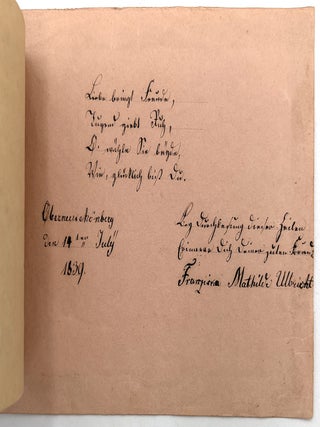 Liebe bringt Freude,
Tugend giebt Ruh,
O! wähle Sie beyde,
Wie glücklich bist Du.
Oberneuschönberg
den 14ten July
1859.
Bey Durchlesung dieser Zeilen
Erinnere Dich Deiner guten Freundin
Mathilde Ulbricht